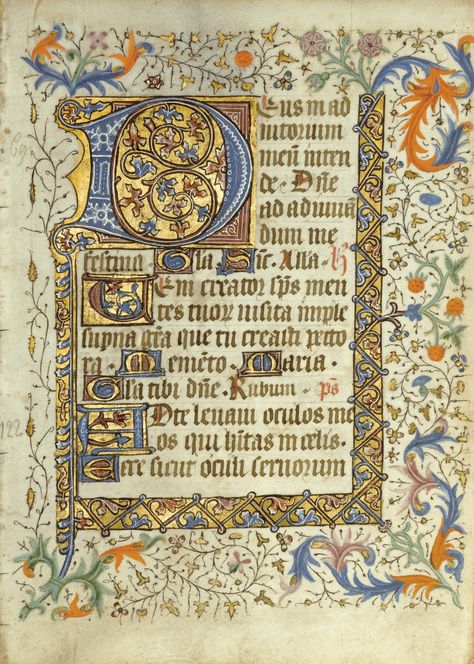 Deus in ad
iutorium
meū inten
de · Dn̄e
ad adiuuā
dum me
festina. Gl̄a Sic̄. Alla. h̄
Veni creator sp̄s men
tes tuoꝝ uisita imple
sup̄na gr̄a que tu creasti pecto
ra. Memēto Maria
Gl̄a tibi dn̄e. Rubum. ps
Ad te leuaui oculos me
os qui h̄itas in celis.
Ecce sicut oculi seruorum
122